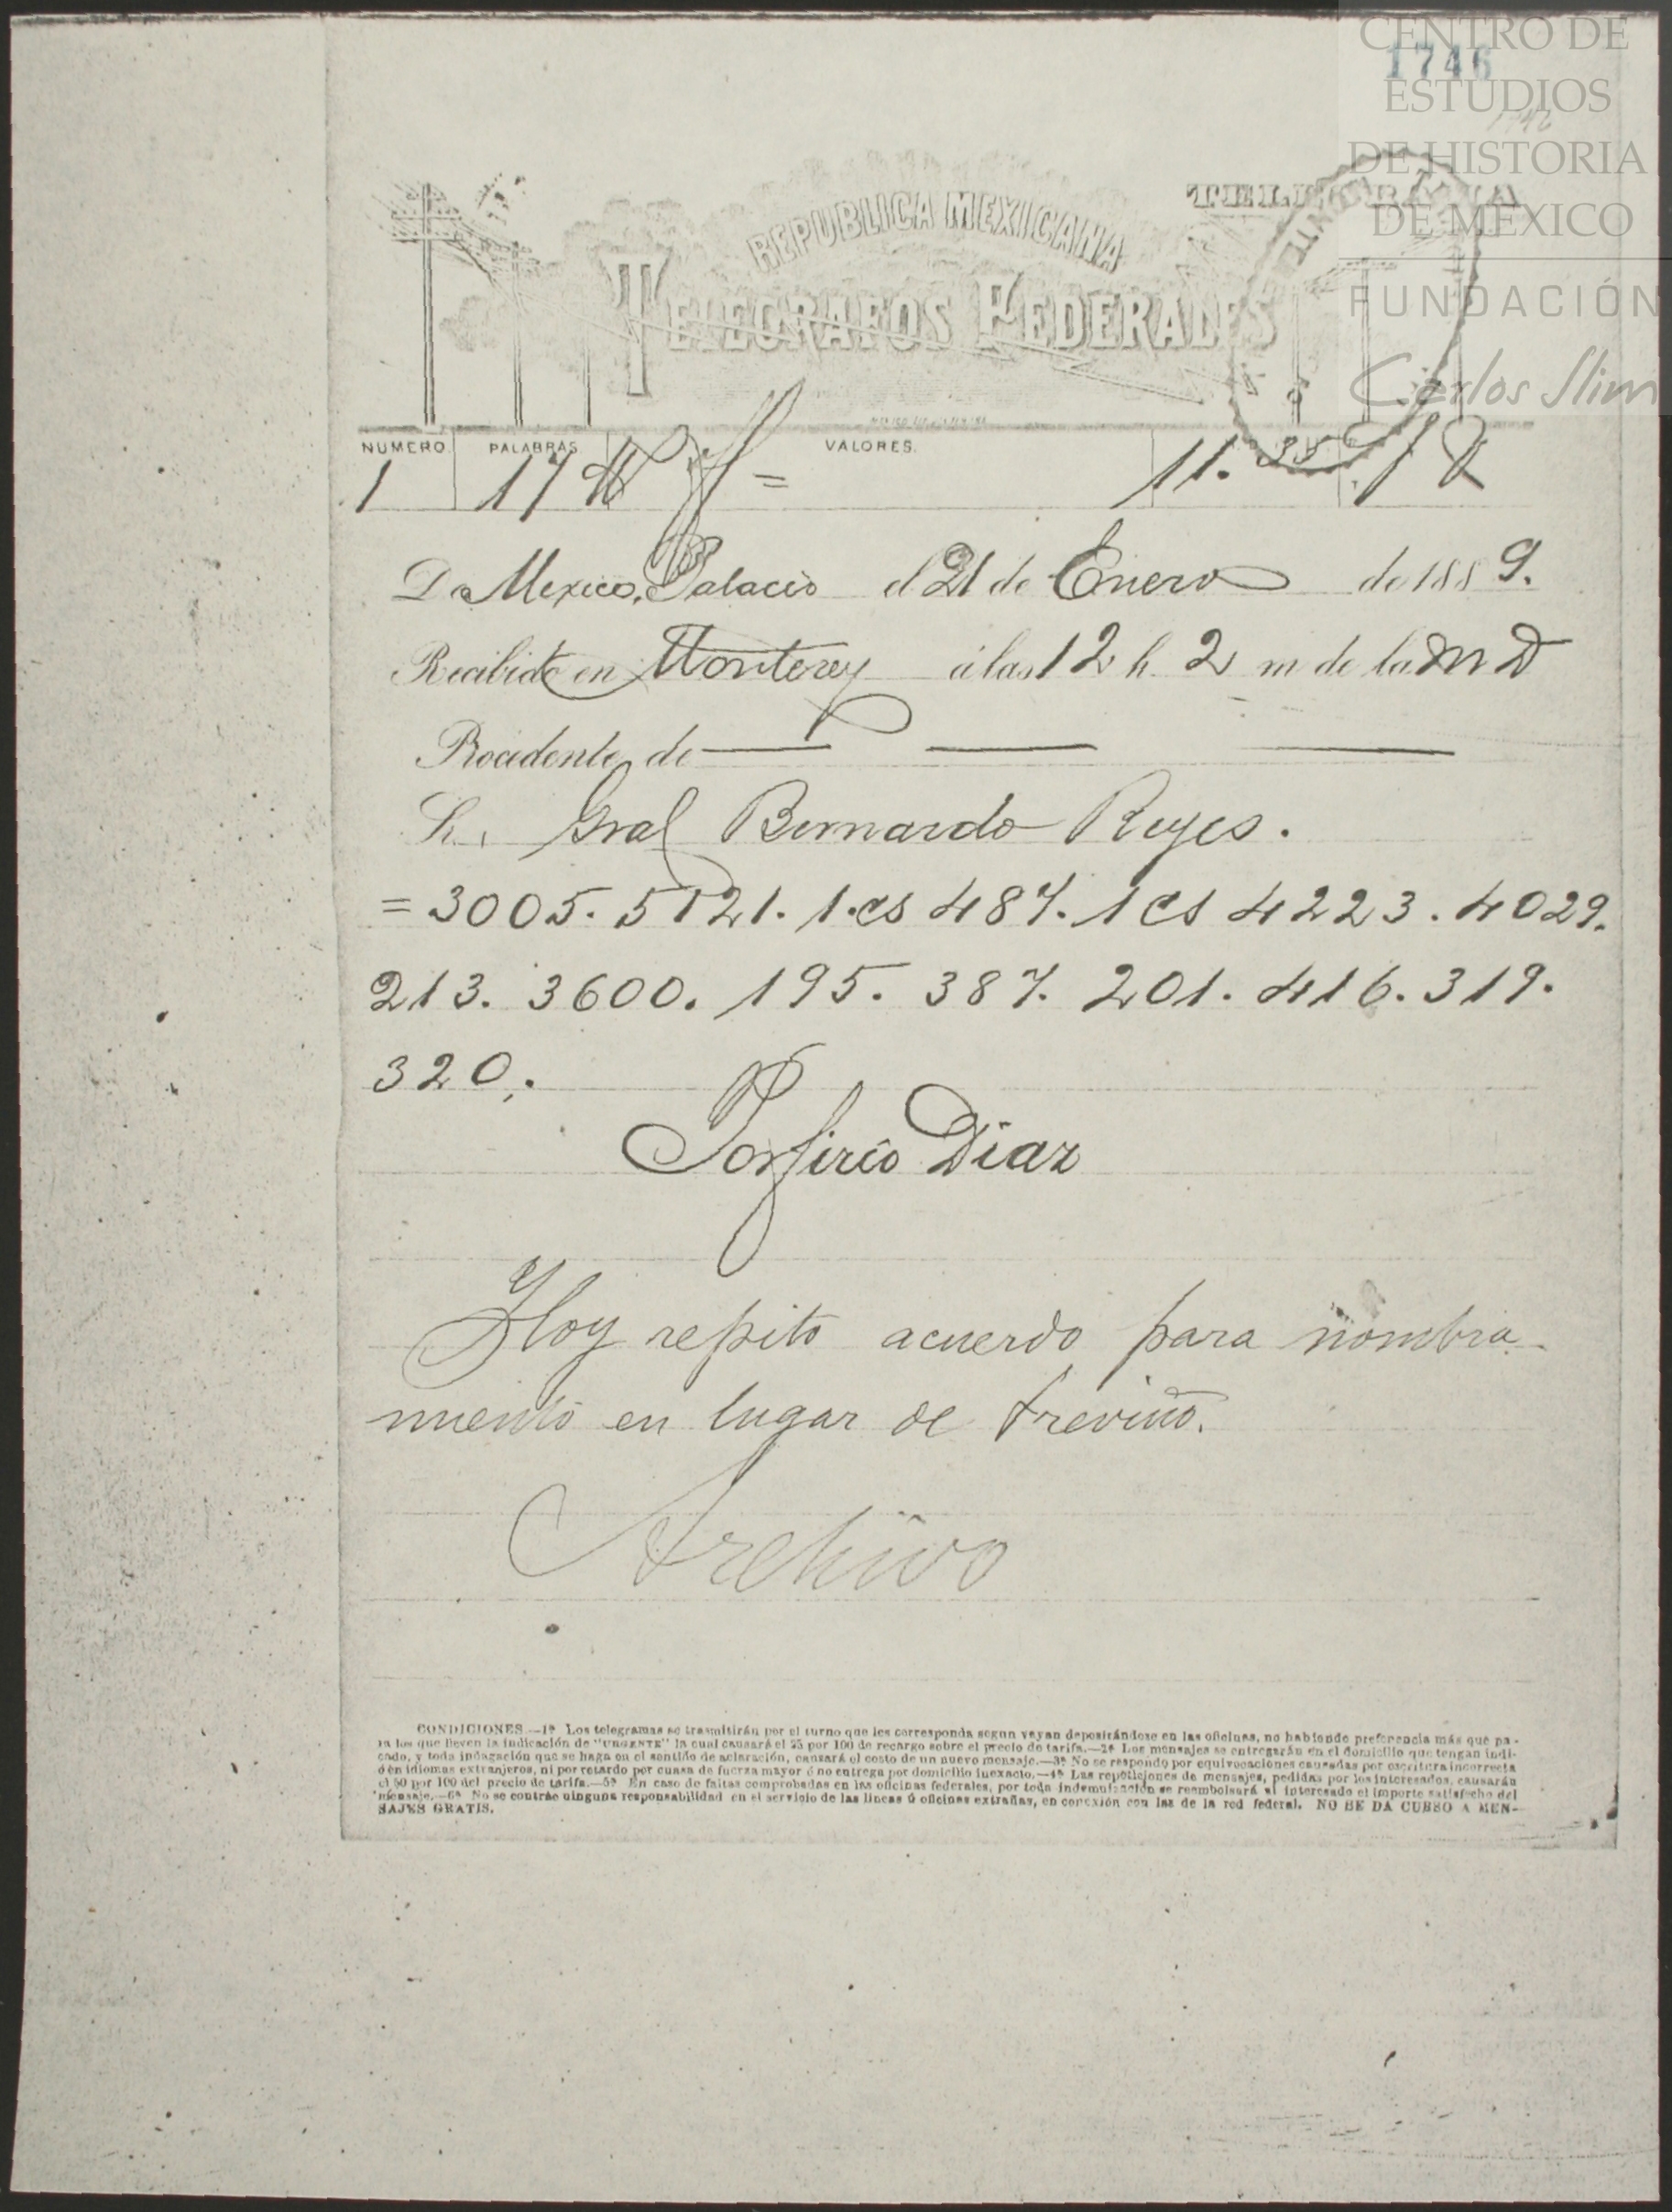 CENTRO DE
1746
ESTUDIOS
DE HISTORIA
DE MÉXICO
FUNDACIÓN
Carlos Slim
REPUBLICA MEXICANA
TELEGRAFOS FEDERALES
NUMERO. PALABRAS. VALORES.
1 17 = 11.35
De Mexico, Palacio el 21 de Enero de 1889.
Recibido en Monterey á las 12 h. 2 m de la m D
Procedente de
Sr. Gral Bernardo Reyes.
= 3005. 5121. 1.cs 487. 1 cs 4223. 4029.
213. 3600. 195. 387. 201. 416. 319.
320.
Porfirio Diaz
Hoy repito acuerdo para nombra-
miento en lugar de treviño.
Archivo
CONDICIONES.—1ª Los telegramas se trasmitirán por el turno que les corresponda segun vayan depositándose en las oficinas, no habiendo preferencia más que pa-
ra los que lleven la indicación de "URGENTE" la cual causará el 25 por 100 de recargo sobre el precio de tarifa.—2ª Los mensajes se entregarán en el domicilio que tengan indi-
cado, y toda indagación que se haga en el sentido de aclaración, causará el costo de un nuevo mensaje.—3ª No se respondo por equivocaciones causadas por escritura incorrecta
ó en idiomas extranjeros, ni por retardo por causa de fuerza mayor ó no entrega por domicilio inexacto.—4ª Las repeticiones de mensajes, pedidas por los interesados, causarán
el 50 por 100 del precio de tarifa.—5ª En caso de faltas comprobadas en las oficinas federales, por toda indemnización se reembolsará al interesado el importe satisfecho del
mensaje.—6ª No se contráe ninguna responsabilidad en el servicio de las lineas ú oficinas extrañas, en conexión con las de la red federal. NO SE DA CURSO A MEN-
SAJES GRATIS.